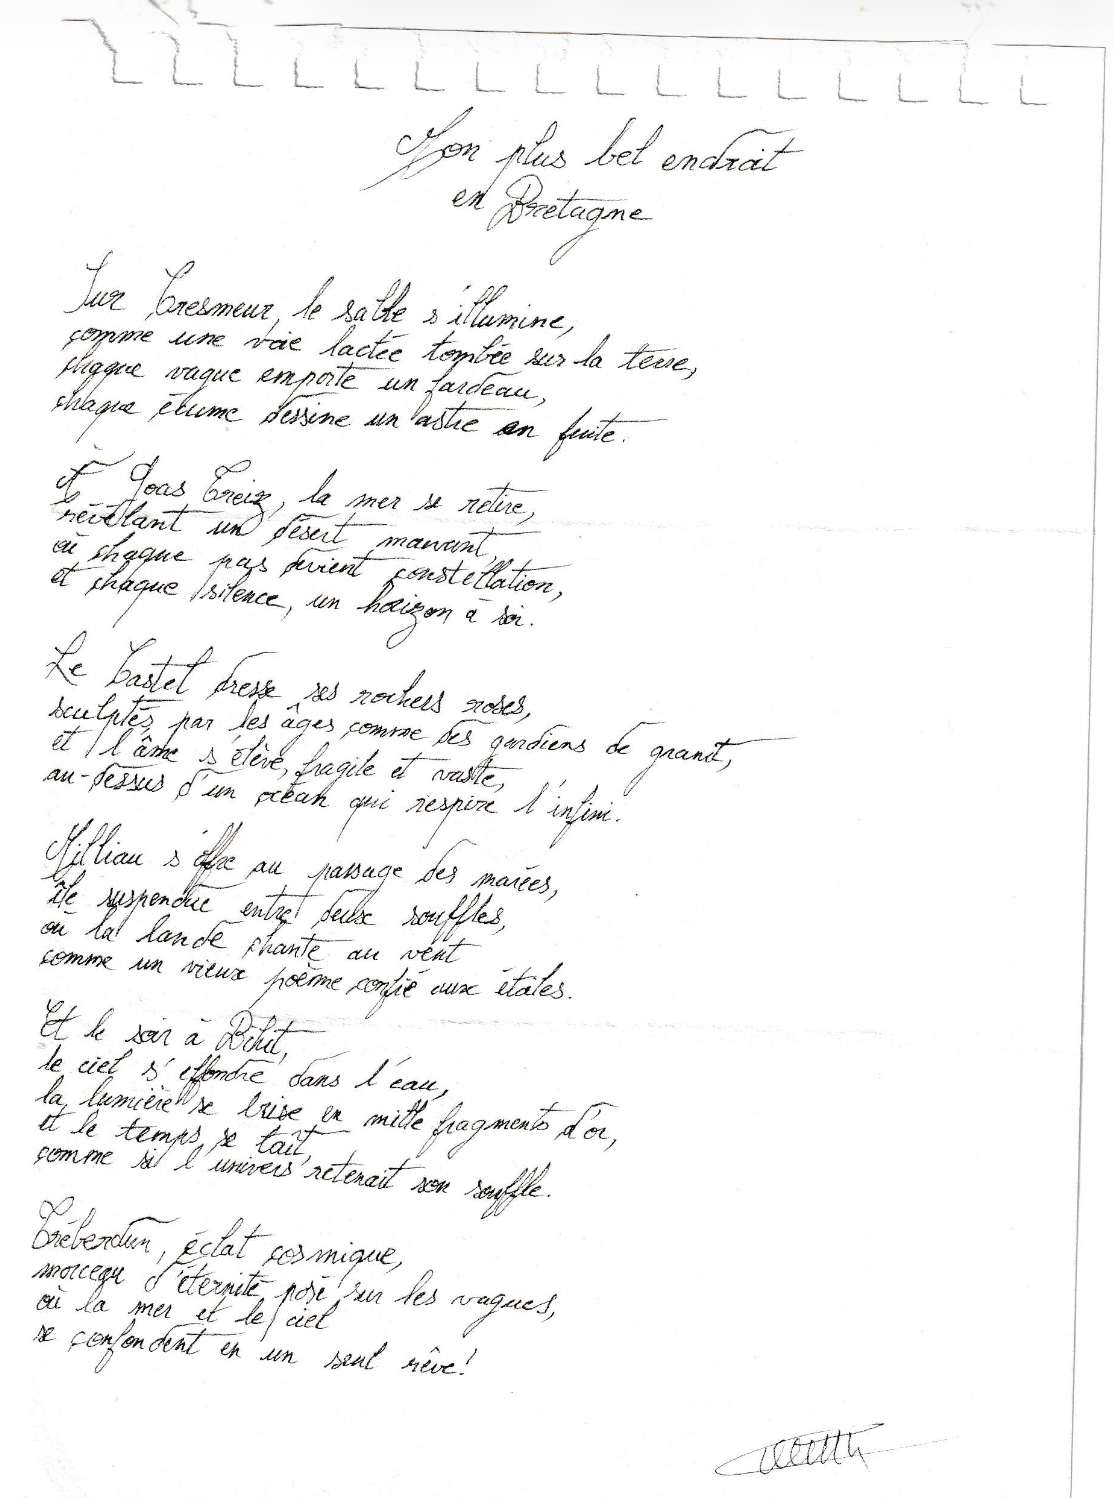 Mon plus bel endroit
en Bretagne
Sur Tresmeur, le sable s'illumine,
comme une voie lactée tombée sur la terre,
chaque vague emporte un fardeau,
chaque écume dessine un astre en fuite.
À Goas Treiz, la mer se retire,
révélant un désert mouvant,
où chaque pas devient constellation,
et chaque silence, un horizon à soi.
Le Castel dresse ses rochers roses,
sculptés par les âges comme des gardiens de granit,
et l'âme s'élève, fragile et vaste,
au-dessus d'un océan qui respire l'infini.
Milliau s'offre au passage des marées,
île suspendue entre deux souffles,
où la lande chante au vent
comme un vieux poème confié aux étoiles.
Et le soir à Bihit,
le ciel s'effondre dans l'eau,
la lumière se brise en mille fragments d'or,
et le temps se tait,
comme si l'univers retenait son souffle.
Trébeurdun, éclat cosmique,
morceau d'éternité posé sur les vagues,
où la mer et le ciel
se confondent en un seul rêve!